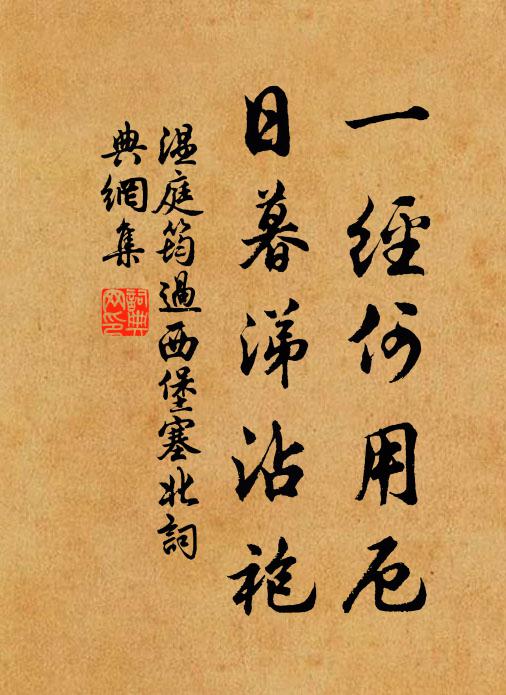 一經何用厄
日暮涕沾袍
溫庭筠過西堡塞北詞
典網集
詞典
網印